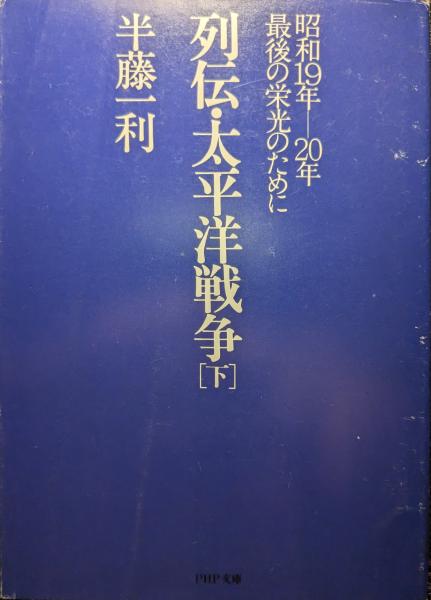 昭和19年―20年
最後の栄光のために
列伝・太平洋戦争[下]
半藤一利
PHP文庫